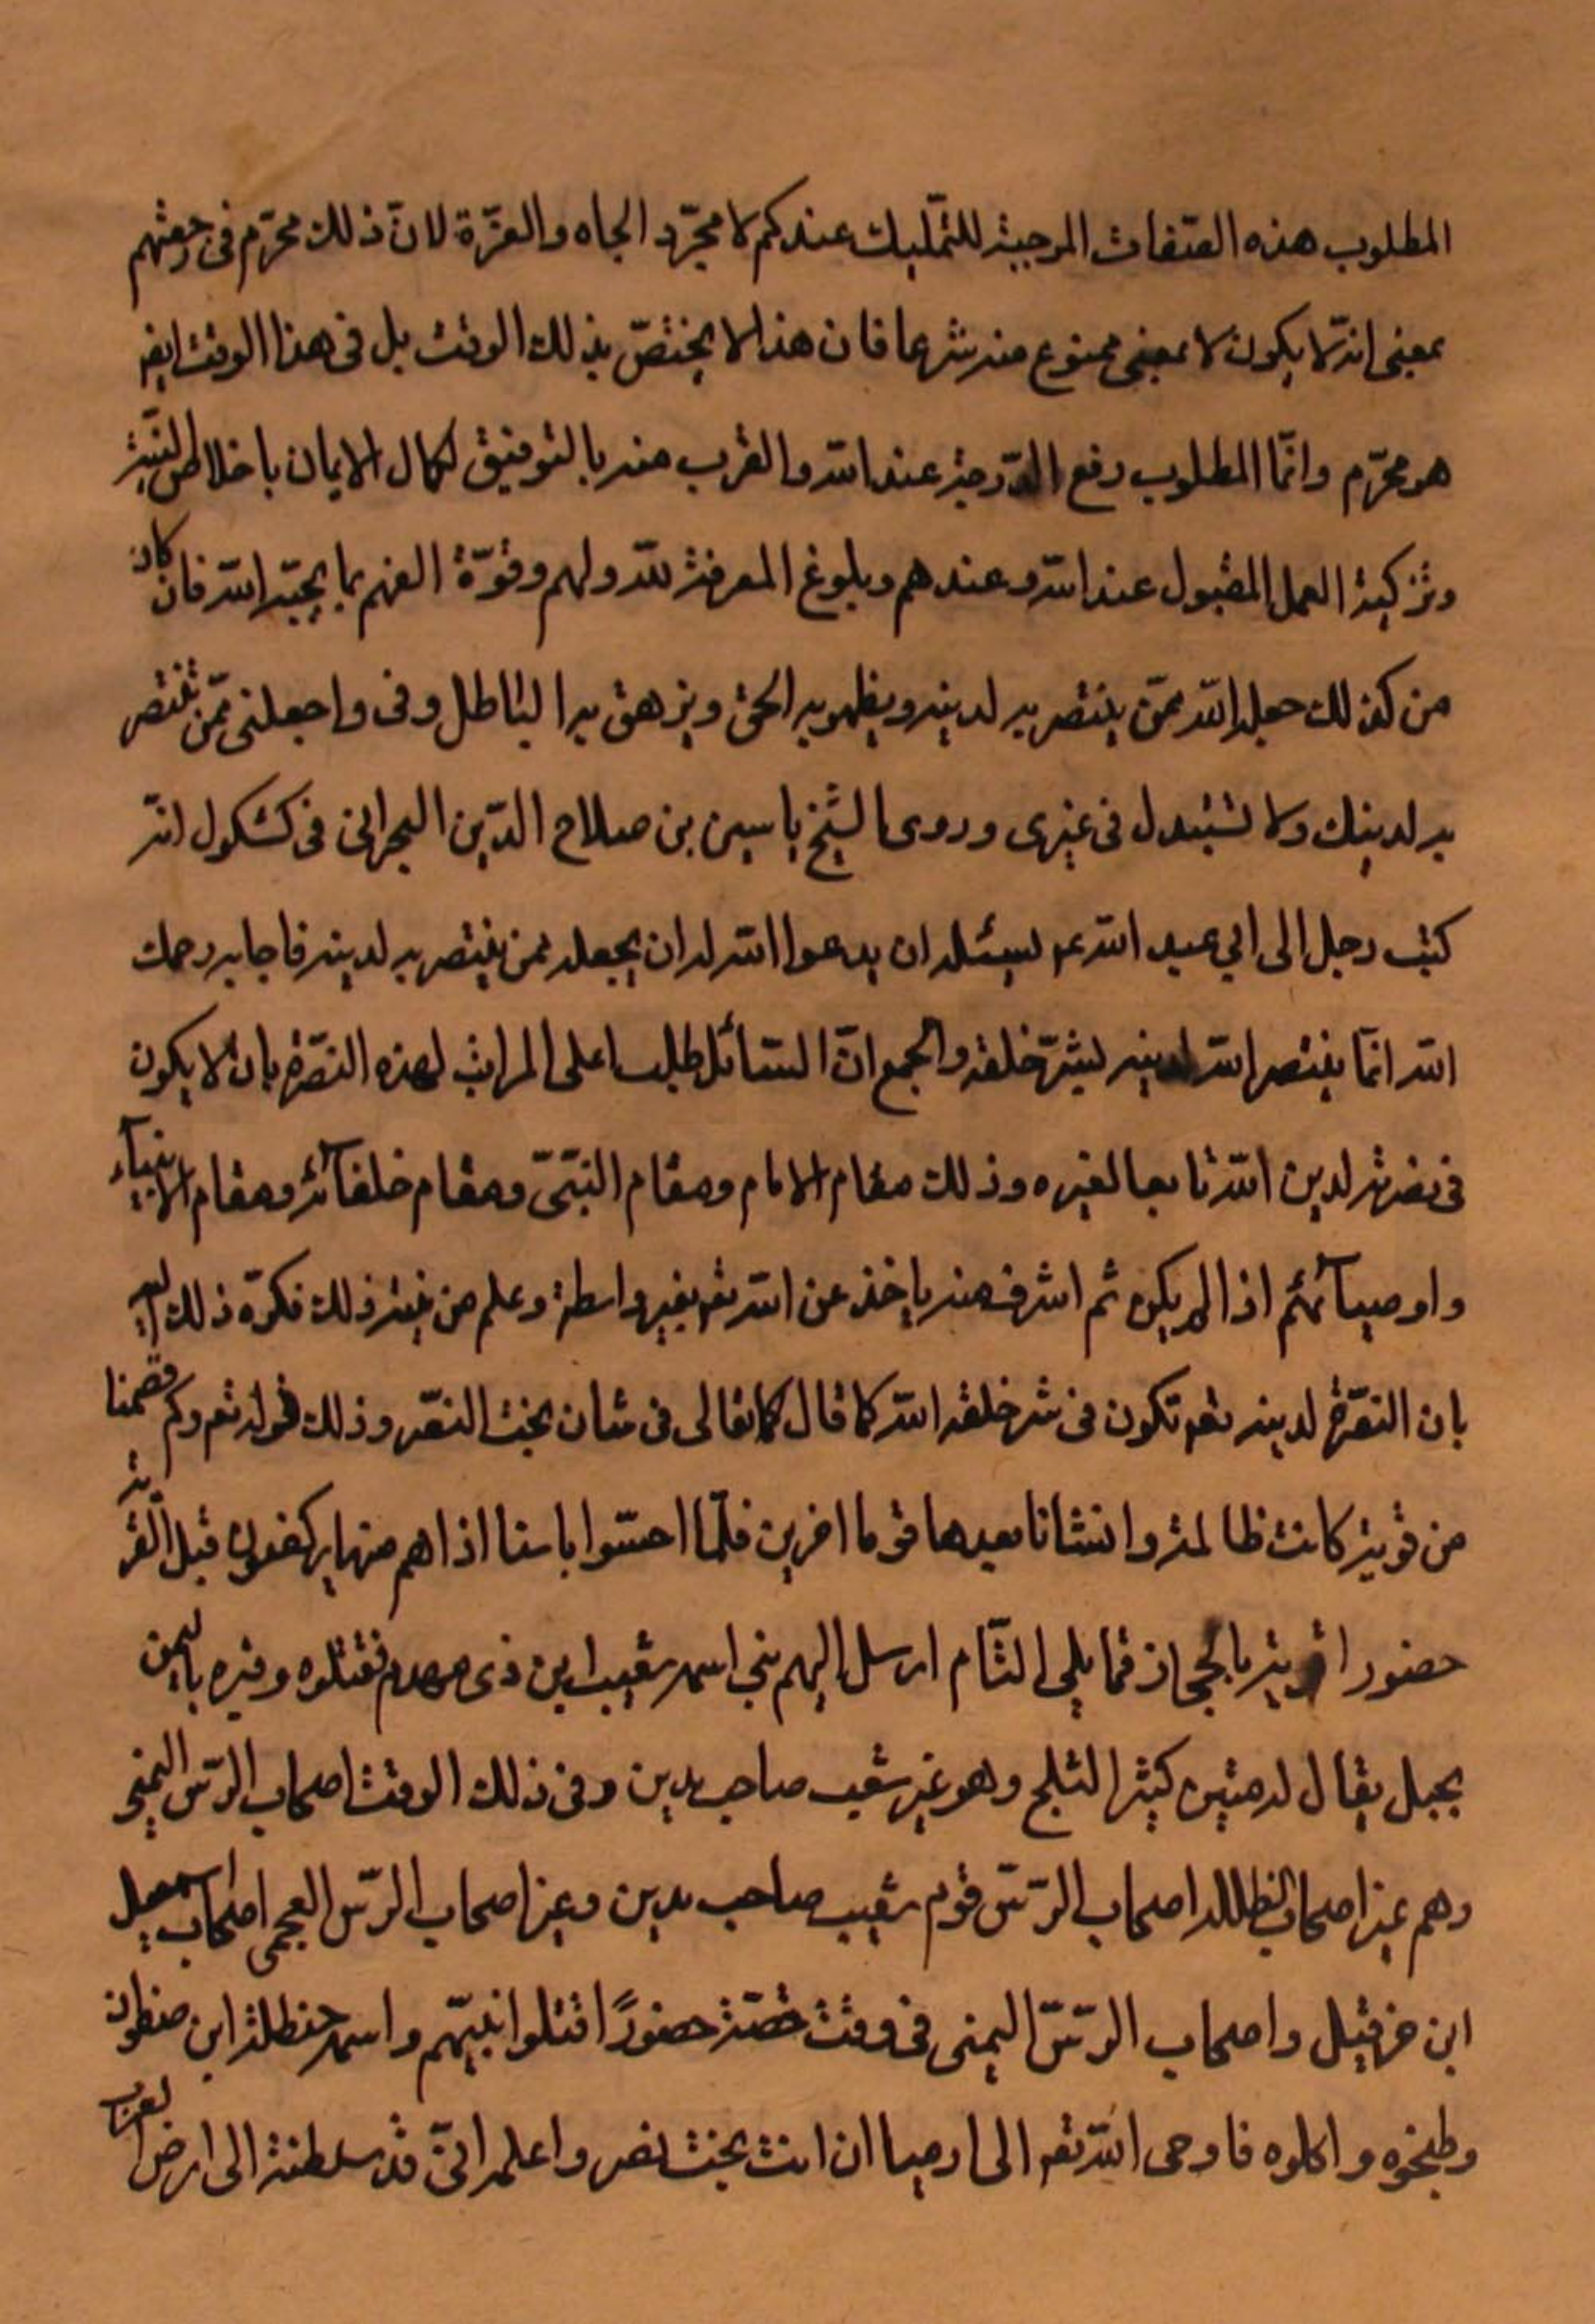 المطلوب هذه الصفات الموجبة للتمليك عندكم لا مجرّد الجاه والعزّة لانّ ذلك محرّم فى رجعتهم
بمعنى انّه لا يكون لا بمعنى ممنوع منه شرعا فان هذا لا يختصّ بذلك الوقت بل فى هذا الوقت ايضا
هو محرّم وانّما المطلوب رفع الدّرجة عند الله والقرب منه بالتوفيق لكمال الايمان باخلاص النيّة
وتزكية العمل المقبول عند الله وعندهم وبلوغ المعرفة لله ولهم وقوّة الفهم بما يحبّه الله فان كان
من كذلك جعله الله ممّن ينتصر به لدينه ويظهر به الحق ويزهق به الباطل وفى واجعلنى ممّن تنتصر
به لدينك ولا تستبدل فى غيرى وروى الشيخ ياسين بن صلاح الدّين البحرانى فى كشكول انّه
كتب رجل الى ابي عبد الله ع يسئله ان يدعوا الله له ان يجعله ممن ينتصر به لدينه فاجابه رحمك
الله انّما ينتصر الله لدينه بشرّ خلقه والجمع انّ السّائل طلب اعلى المراتب لهذه النصّرة بان لا يكون
فى نصرته لدين الله تابعا لغيره وذلك مقام الامام ومقام النبّى ومقام خلفآئه ومقام الانبيآء
واوصيآئهم اذا لم يكن ثم اشرف منه ياخذ عن الله تعم بغير واسطة وعلم من نيته ذلك فكرّه ذلك اليه
بان النصّرة لدينه تعم تكون فى شر خلقه الله كما قال تعالى فى شان بخت النصّر وذلك قوله تعم وكم قصمنا
من قرية كانت ظالمة وانشانا بعدها قوما اخرين فلمّا احسّوا باسنا اذا هم منها يركضون قيل القرية
حضور اقرية بالحجاز مما يلى الشّام ارسل اليهم نبى اسمه شعيب ابن ذى مهدم فقتلوه وقبره باليمن
بجبل يقال له كثير الثلج وهو غير شعيب صاحب مدين وفى ذلك الوقت اصحاب الرّس اليمنى
وهم غير اصحاب الظلله اصحاب الرّسّ قوم شعيب صاحب مدين وغير اصحاب الرّس العجمى اصحاب اسمعيل
ابن حزقيل واصحاب الرّسّ اليمنى فى وقت قصّة حضورًا قتلوا نبيّهم واسمه حنظلة ابن صفوان
وطبخوه واكلوه فاوحى الله تعم الى ارميا ان ائت بخت نصر واعلمه انّى قد سلطته الى ارض العرب